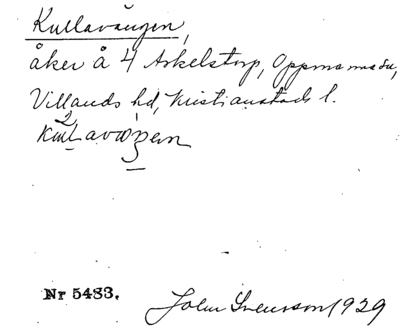 Kullavången,
åker å 4 Arkelstorp, Oppmanna sn,
Villands hd, Kristianstads l.
Nr 5483.
John Svensson 1929